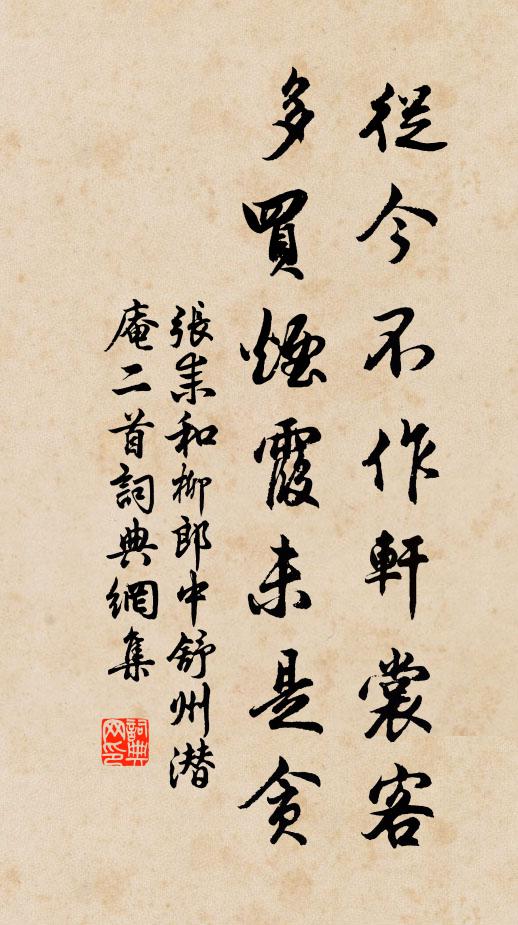 從今不作軒裳客
多買煙霞未是貪
張耒和柳郎中舒州潛
庵二首詞典網集
詞典
网印